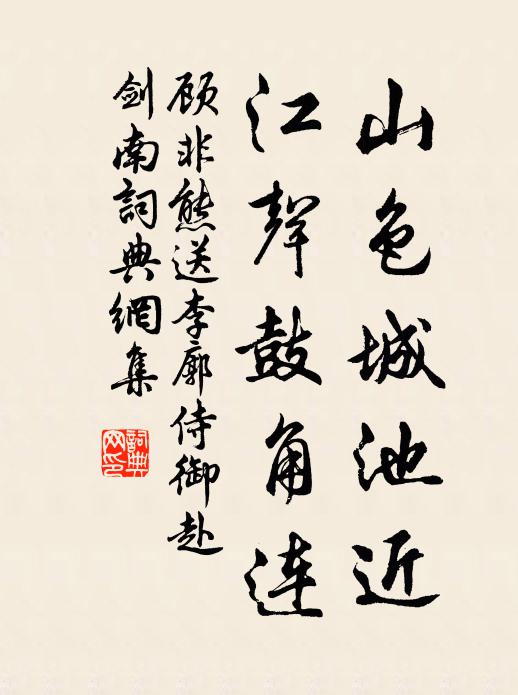 山色城池近
江聲鼓角連
顾非熊送李廓侍御赴
剑南詞典網集
詞典
网印